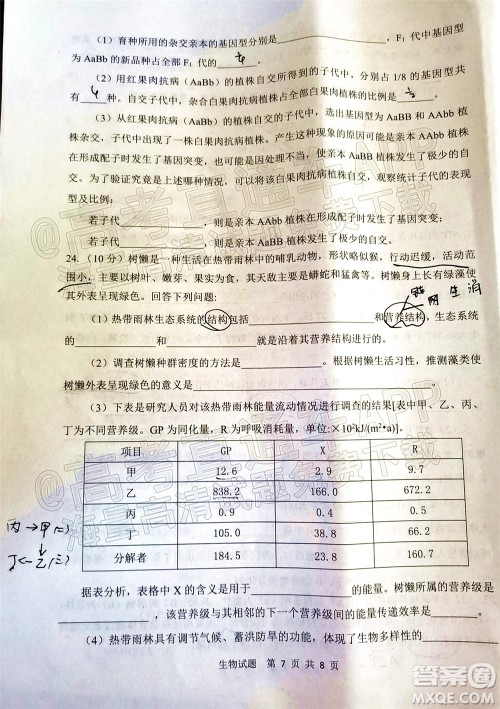 (1)育种所用的杂交亲本的基因型分别是____________,F₁代中基因型
为 AaBb 的新品种占全部 F₁代的____。
(2)用红果肉抗病(AaBb)的植株自交所得的子代中,分别占 1/8 的基因型
共有 4 种。自交子代中,杂合白果肉抗病植株占全部白果肉抗病植株的比例是____。
(3)从红果肉抗病(AaBb)的植株自交子代中,选出基因型为 AaBB 和 AAbb 植
株杂交,子代中出现了一株白果肉抗病植株。产生这种现象的原因可能是亲本 AAbb 植株
在形成配子时发生了基因突变,也可能是亲本 AaBB 植株在形成配子时发生了极少的自
交。为了验证究竟是上述哪种情况,可以将该白果肉抗病植株自交,观察统计子代的表现型
及比例:
若子代____________,则是亲本 AAbb 植株在形成配子时发生了基因突变;
若子代____________,则是亲本 AaBB 植株发生了极少的自交。
24.(10 分)树懒是一种生活在热带雨林中的哺乳动物,形状略似猴,行动迟缓,活动范
围小,主要以树叶、嫩芽、果实为食,其天敌主要是蟒蛇和猛禽等。树懒身上长有绿藻使
其外表呈现绿色。回答下列问题:
链 网 生 消
(1)热带雨林生态系统的结构包括____________和营养结构,生态系统
的____________和____________就是沿着其营养结构进行的。
(2)调查树懒种群密度的方法是____________。根据树懒生活习性,推测藻类使
树懒外表呈现绿色的意义是____________。
(3)下表是研究人员对该热带雨林能量流动情况进行调查的结果[表中甲、乙、丙、
丁为不同营养级。GP 为同化量,R 为呼吸消耗量,单位:×10²kJ/(m²·a)]。
项目 GP X R
甲 12.6 2.9 9.7
乙 838.2 166.0 672.2
丙 0.9 0.4 0.9
丁 105.0 38.8 64.4
分解者 184.5 23.8 160.7
丙→甲(三)
丁←乙(三)
据表分析,表格中 X 的含义是用于____________的能量。树懒所属的营养级是
____________,该营养级与其相邻的下一个营养级间的能量传递效率是____________。
(4)热带雨林具有调节气候、蓄洪防旱的功能,体现了生物多样性的____________
生物试题 第 7 页 共 8 页
答案圈
MXQE.COM